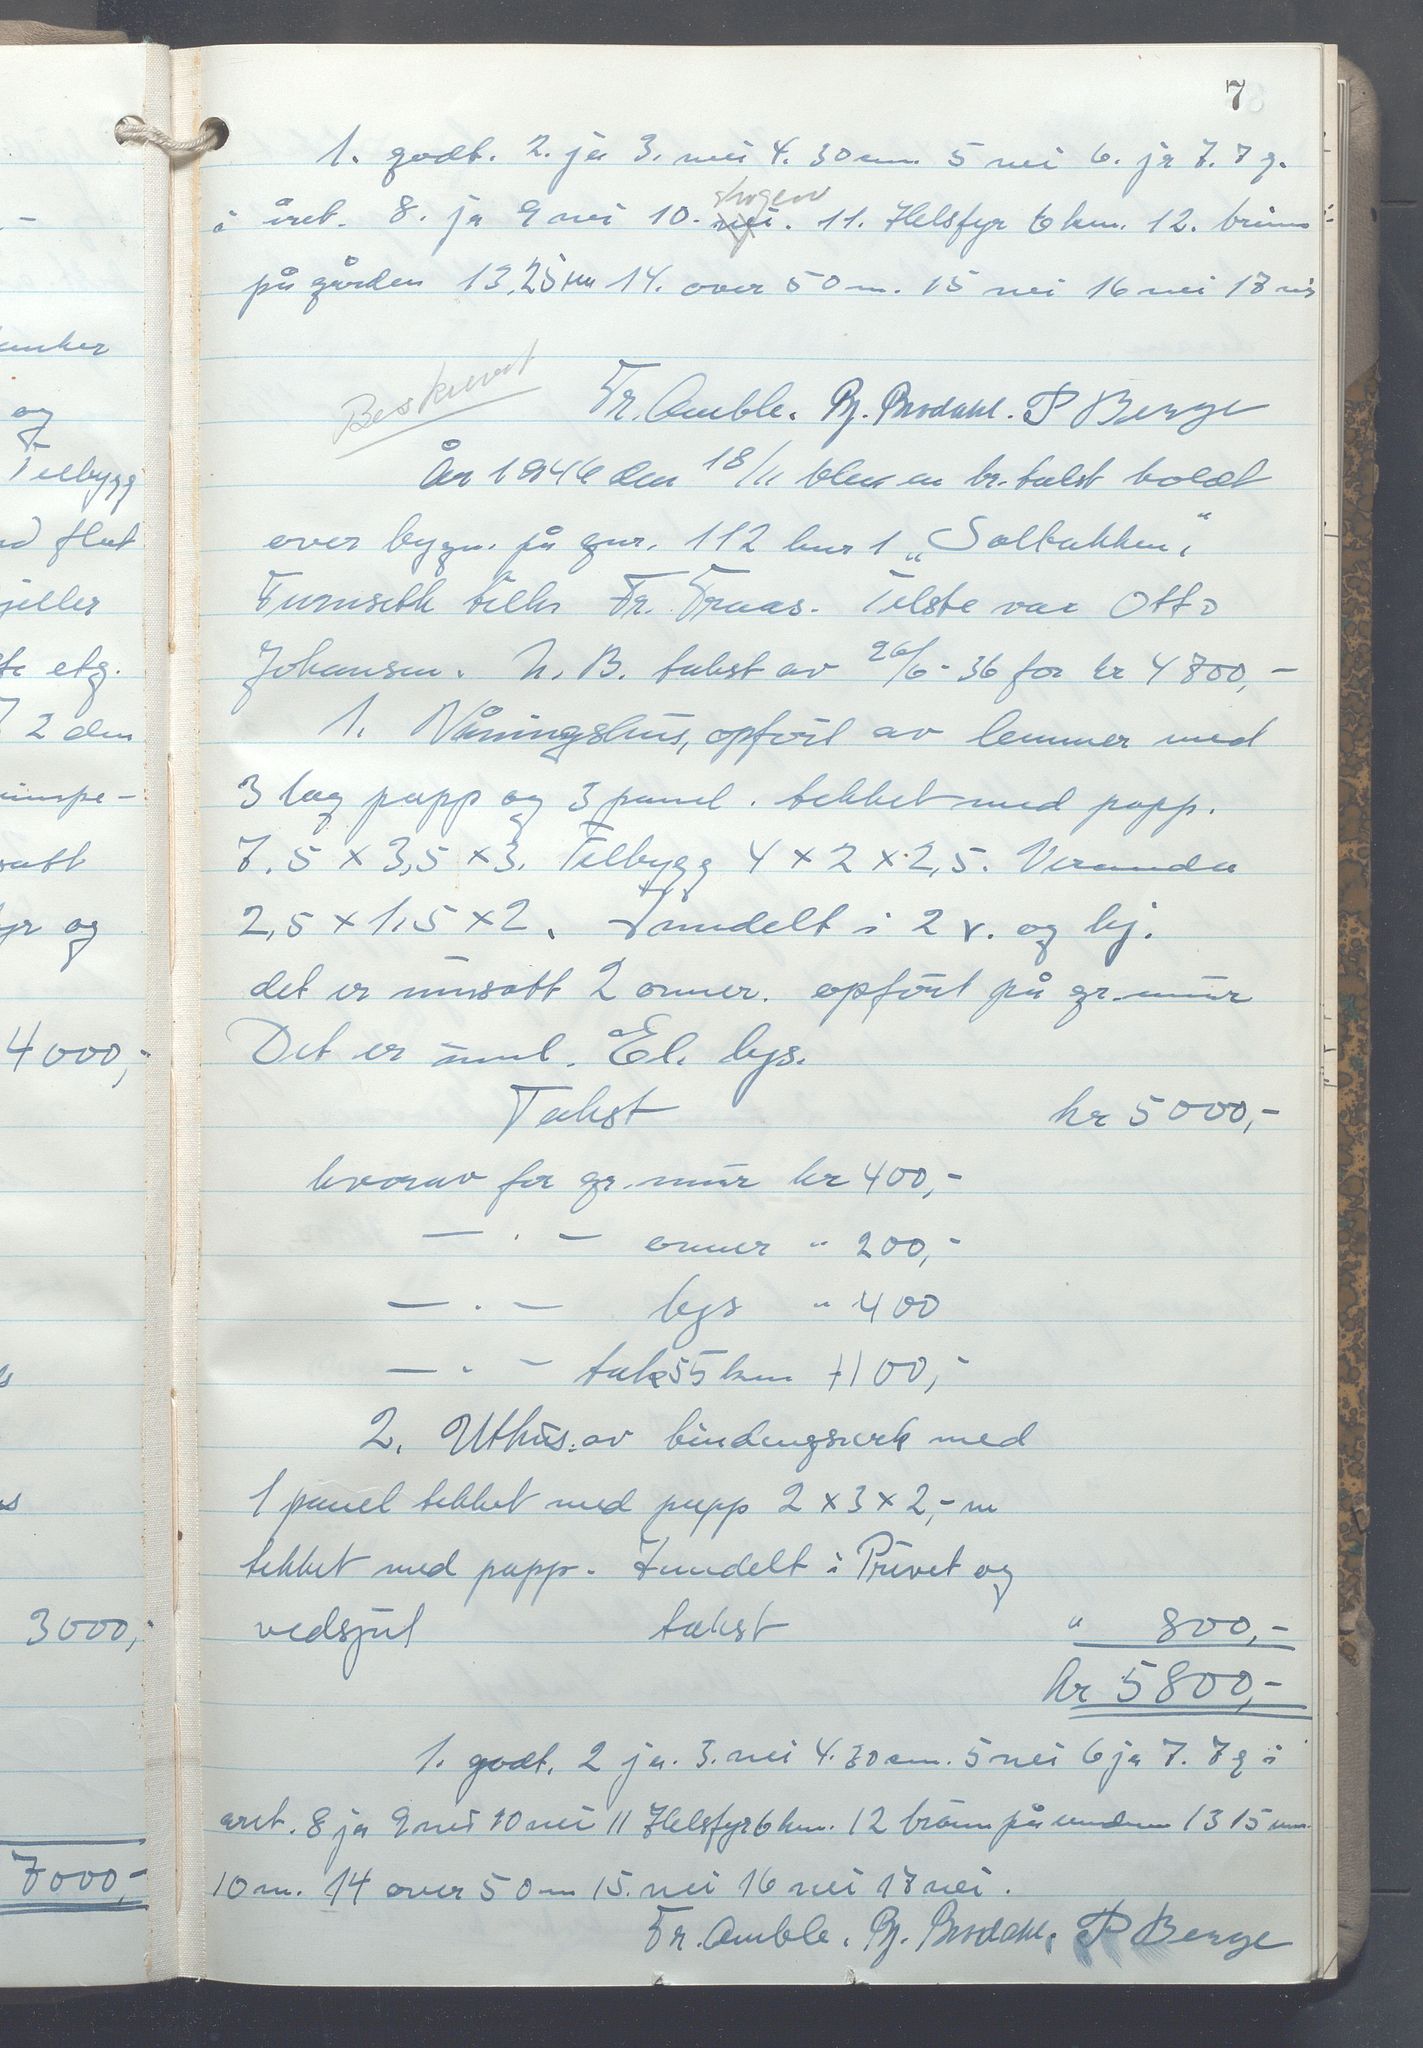 7
1. godt. 2. ja 3. nei 4. 30 cm. 5 nei 6. ja 7. 7 g.
i året. 8. ja 9 nei 10. skogen 11. Helsfyr 6 km. 12. brönn
på gården 13. 25 m 14. over 50 m. 15 nei 16 nei 17 nei
Beskrevet
Fr. Amble. Bj. Brodahl. P Berge
År 1946 den 18/11 blev en br.takst holdt
over bygn. på gnr. 112 bnr 1 „Solbakken"
Furuseth tilh. Fr. Fraas. Tilste var Otto
Johansen. N. B. takst av 26/6-36 for kr 4800,-
1. Våningshus, opfört av lemmer med
3 lag papp og 3 panel. tekket med papp.
7,5 x 3,5 x 3. Tilbygg 4 x 2 x 2,5. Veranda
2,5 x 1,5 x 2. Inndelt i 2 v. og kj.
det er innsatt 2 ovner. opfört på gr.mur
Det er innl. El. lys.
Takst kr 5000,-
hvorav for gr.mur kr 400,-
— . — ovner " 200,-
— . — lys " 400
— . — takst km 100,-
2. Uthus. av bindingsverk med
1 panel tekket med papp 2 x 3 x 2,- m
tekket med papp. Inndelt i Privet og
vedsjul takst " 800,-
kr 5800,-
1. godt. 2 ja. 3. nei 4. 30 cm. 5 nei 6 ja 7. 7 g i
aret. 8 ja 9 nei 10 nei 11 Helsfyr 6 km. 12 brönn på 13 15 mm
10 m. 14 over 50 m 15. nei 16 nei 17 nei.
Fr. Amble. Bj. Brodahl. P Berge